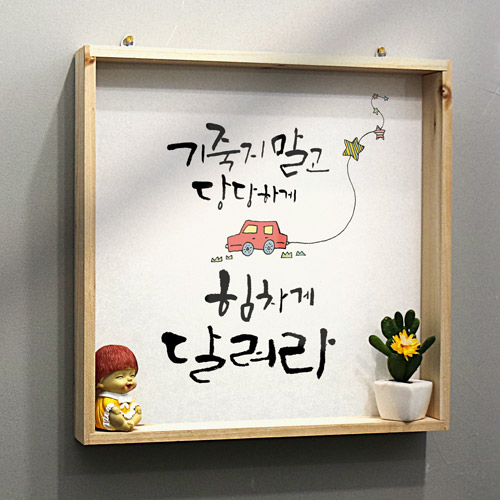 기죽지 말고
당당하게
힘차게
달려라